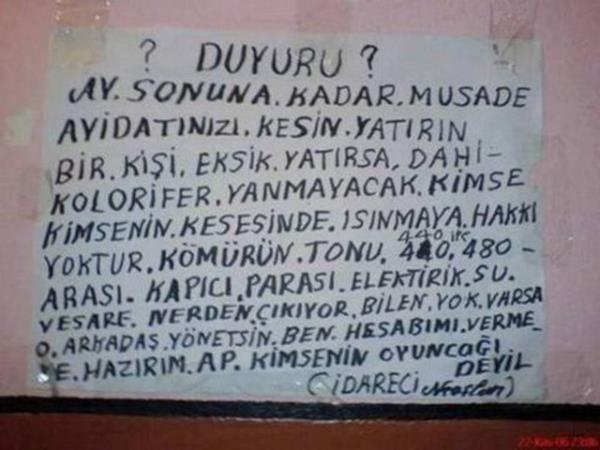 ? DUYURU ?
AY. SONUNA. KADAR. MUSADE
AYIDATINIZI. KESİN. YATIRIN
BİR. KİŞİ. EKSİK. YATIRSA, DAHİ-
KOLORİFER. YANMAYACAK. KİMSE
KİMSENİN. KESESİNDE. ISINMAYA. HAKKI
YOKTUR. KÖMÜRÜN. TONU. 440 İLE. 480 -
ARASI. KAPICI. PARASI. ELEKTİRİK. SU.
VESARE. NERDEN. ÇIKIYOR. BİLEN. YOK. VARSA
O. ARKADAŞ. YÖNETSİN. BEN. HESABIMI. VERME_
YE. HAZIRIM. AP. KİMSENİN OYUNCAĞI
DEYİL
(İDARECİ
22-Kas-06 23:06